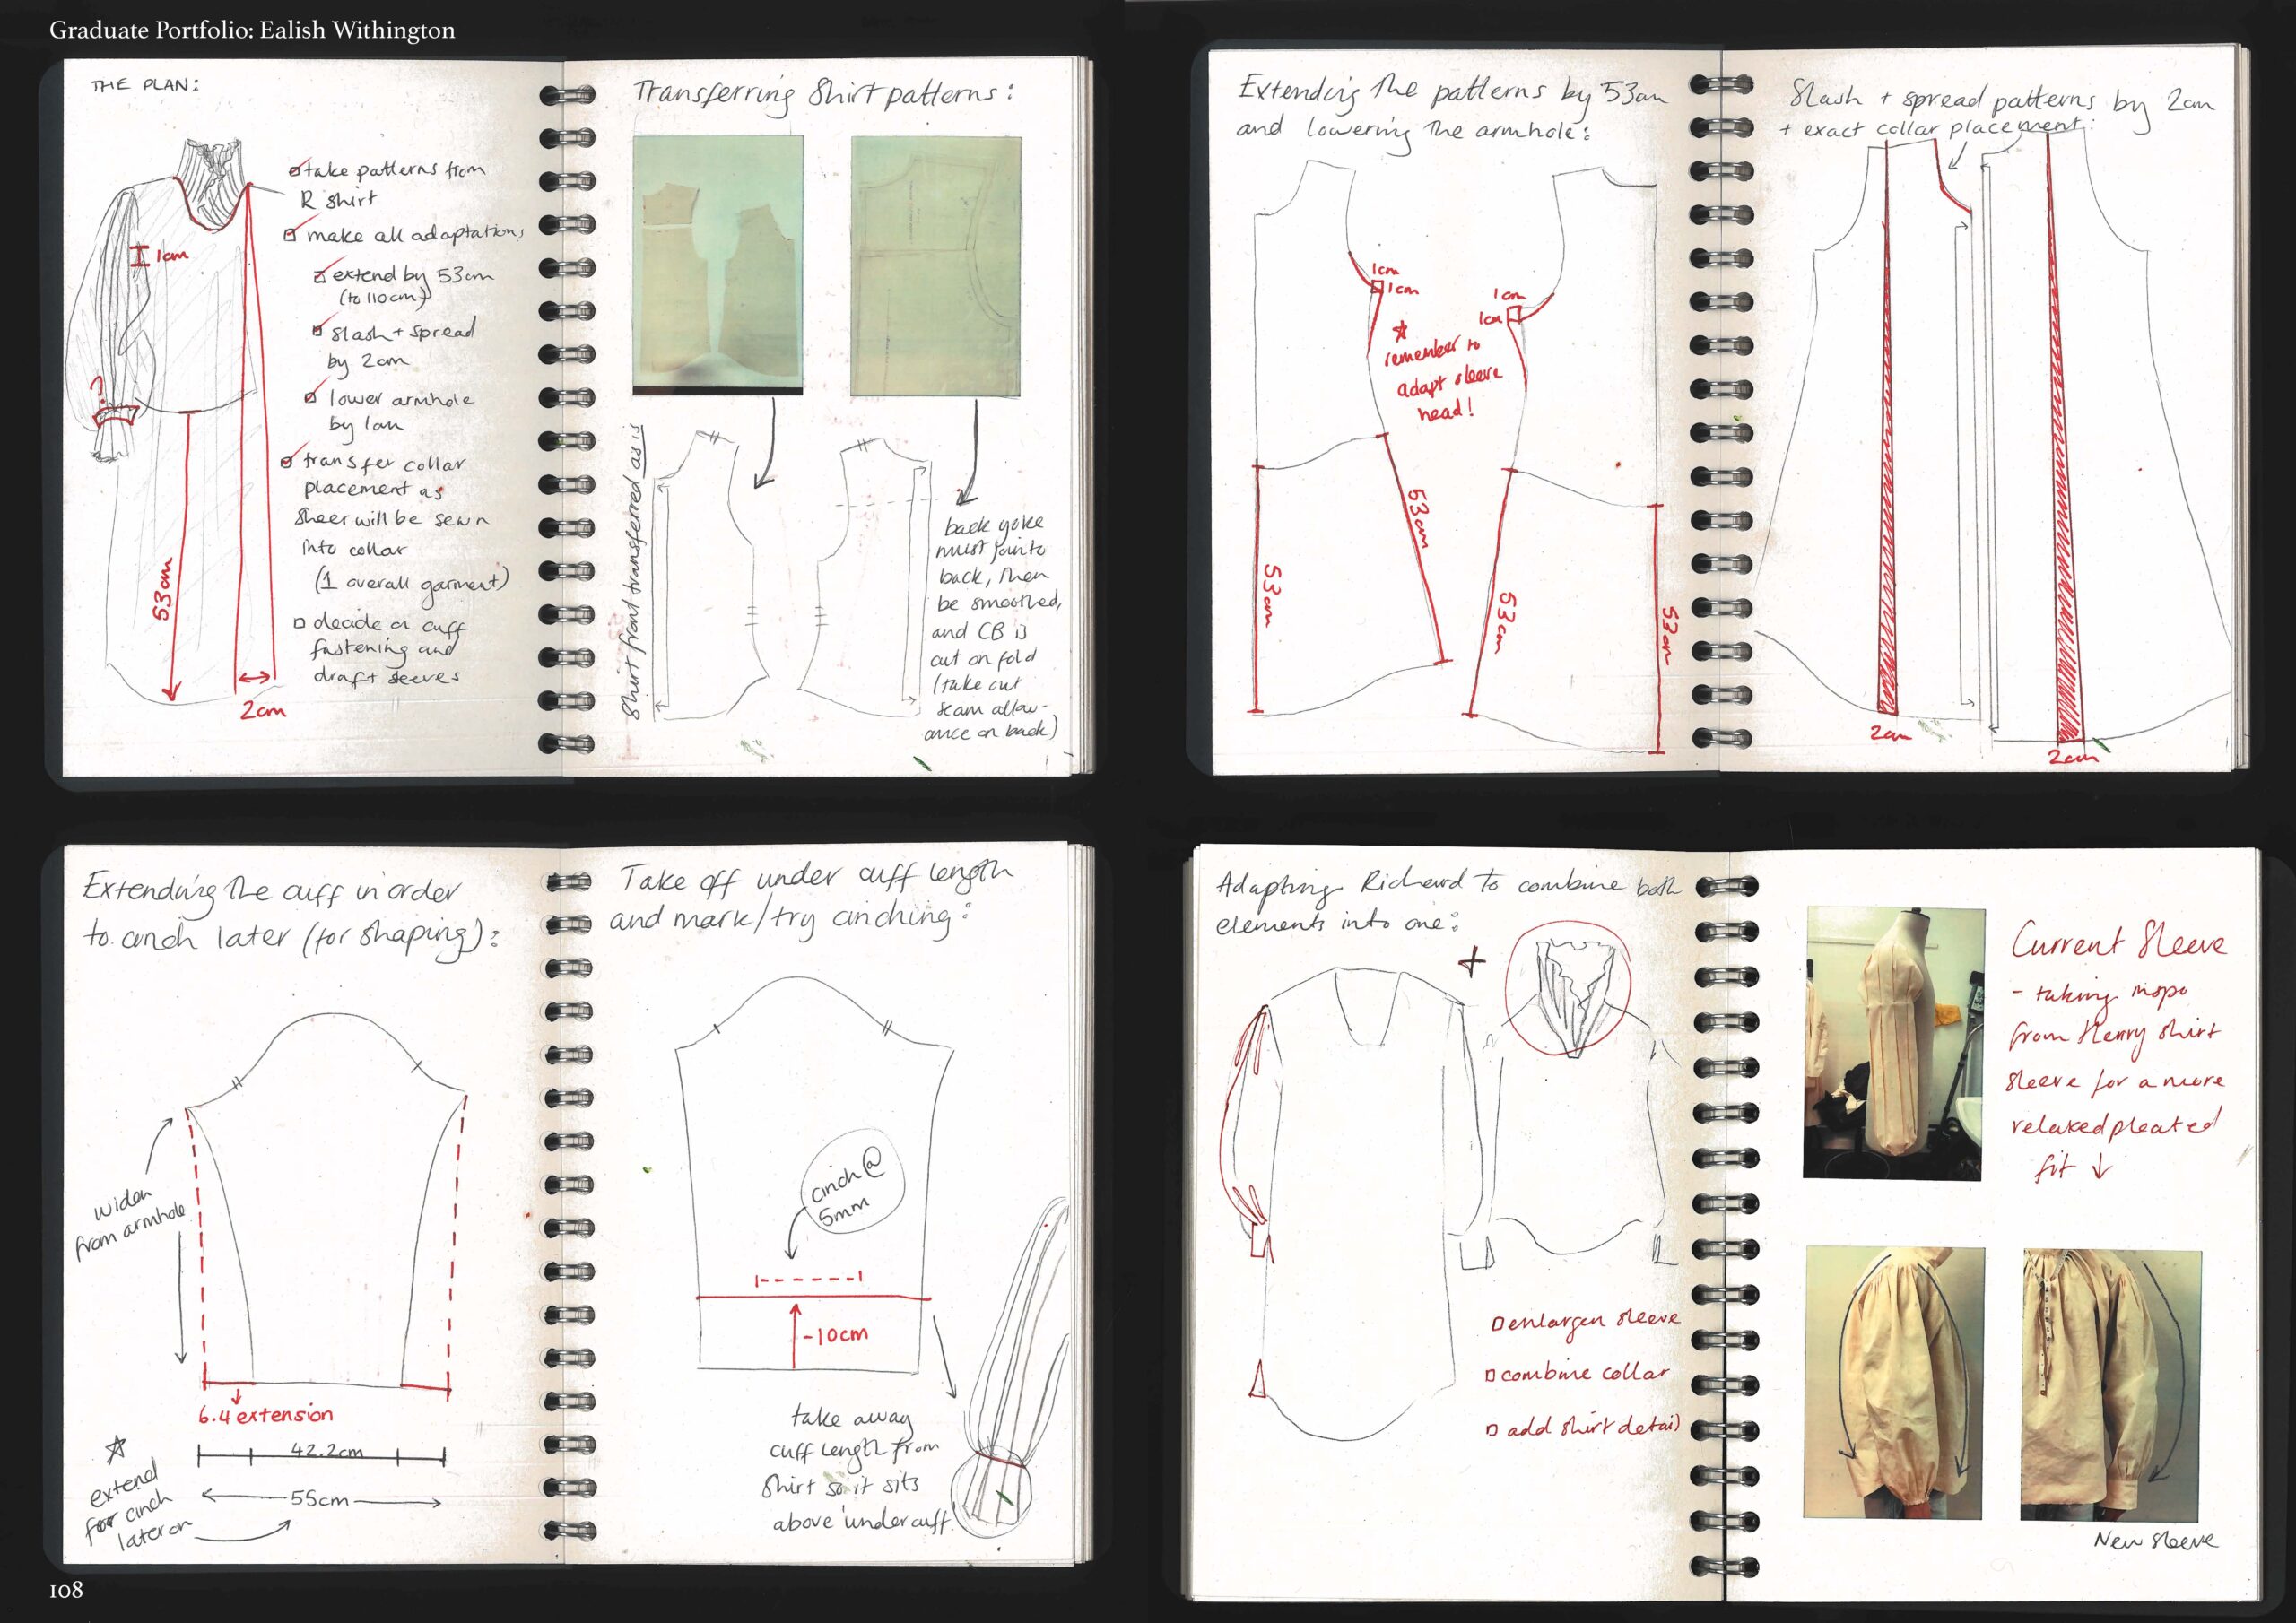 Graduate Portfolio: Ealish Withington
THE PLAN:
take patterns from
R shirt
make all adaptations
extend by 53cm
(to 110cm)
slash + spread
by 2cm
lower armhole
by 1cm
transfer collar
placement as
sheer will be sewn
into collar
(1 overall garment)
decide on cuff
fastening and
draft sleeves
1cm
?
53cm
2cm
Transferring Shirt patterns:
Shirt front transferred as is
back yoke
must join to
back, then
be smoothed,
and CB is
cut on fold
(take out
seam allow-
ance on back)
Extending the patterns by 53cm
and lowering the armhole:
1cm
1cm
1cm
1cm
remember to
adapt sleeve
head!
53cm
53cm
53cm
53cm
Slash + spread patterns by 2cm
+ exact collar placement:
2cm
2cm
Extending the cuff in order
to cinch later (for shaping):
widen
from armhole
6.4 extension
42.2cm
55cm
extend
for cinch
later on
Take off under cuff length
and mark/try cinching:
cinch @
5mm
-10cm
take away
cuff length from
shirt so it sits
above undercuff.
Adapting Richard to combine both
elements into one:
+
enlargen sleeve
combine collar
add shirt detail
Current Sleeve
- taking inspo
from Henry shirt
sleeve for a more
relaxed pleated
fit ↓
New Sleeve
108